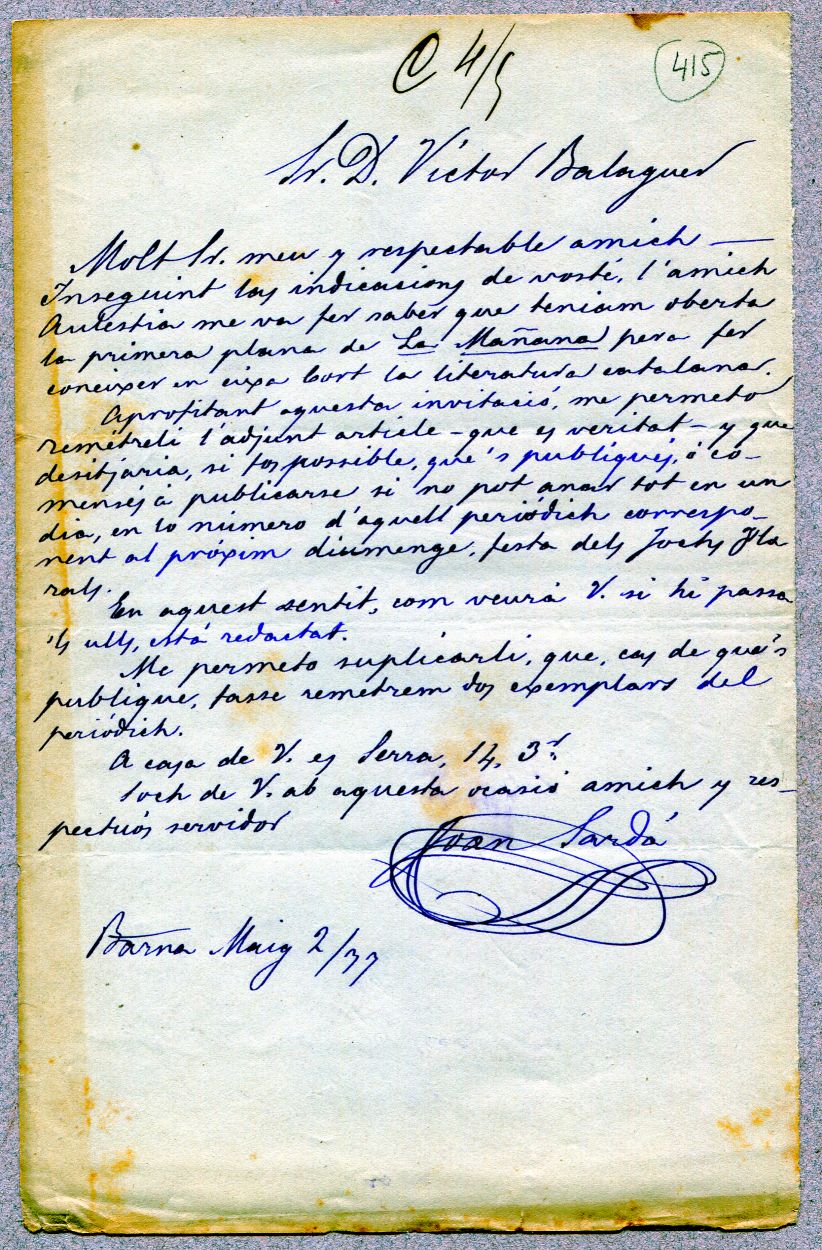 C 4/5
415
Sr. D. Victor Balaguer
Molt Sr. meu y respectable amich —
Inseguint las indicacions de vosté, l'amich
Aulestia me va fer saber que teniam oberta
la primera plana de La Mañana pera fer
coneixer en eixa Cort la literatura catalana.
Aprofitant aquesta invitació, me permeto
remétreli l'adjunt article – que es veritat – y que
desitjaria, si fos possible, que's publiqués, ó co-
mensés á publicarse si no pot anar tot en un
dia, en lo número d'aquell periódich correspo-
nent al próxim diumenge, festa dels Jochs Flo
rals.
En aquest sentit, com veurá V. si hi passa
'ls ulls, está redactat.
Me permeto suplicarli, que, cas de que's
publique, fasse remetrem dos exemplars del
periódich.
A casa de V. es Serra, 14, 3r.
Soch de V. ab aquesta ocasió amich y res-
pectuós servidor
Joan Sardá
Barna Maig 2/77